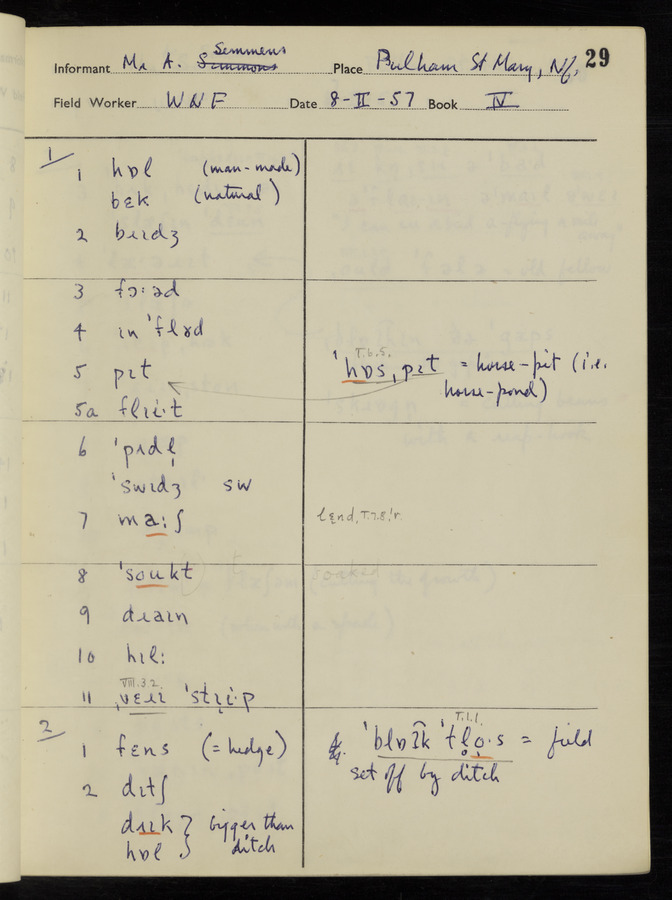 29
Semmens
Informant Mr A. Simmons Place Pulham St Mary, Nf.
Field Worker WNF Date 8-II-57 Book IV
1
1 hɒl (man-made)
bɛk (natural)
2 bɹɪdʒ
3 fɔːəd
4 ɪn'flɤd
T.6.5.
5 pɪt 'hɒs,pɪt = horse-pit (i.e.
horse-pond)
5a flɪiˑt
6 'pɪdl̩
'swɪdʒ sw
7 maːʃ lɛnd, T.7.8.
8 'soukt soaked
9 dɹaɪn
10 hɪlː
VIII.3.2.
11 ,vɛɹi 'stɹiˑp
2
T.1.1.
1 fɛns (= hedge) 'blɒʔk = field
set off by ditch
2 dɪtʃ
dɪɪk } bigger than
hɒl } ditch